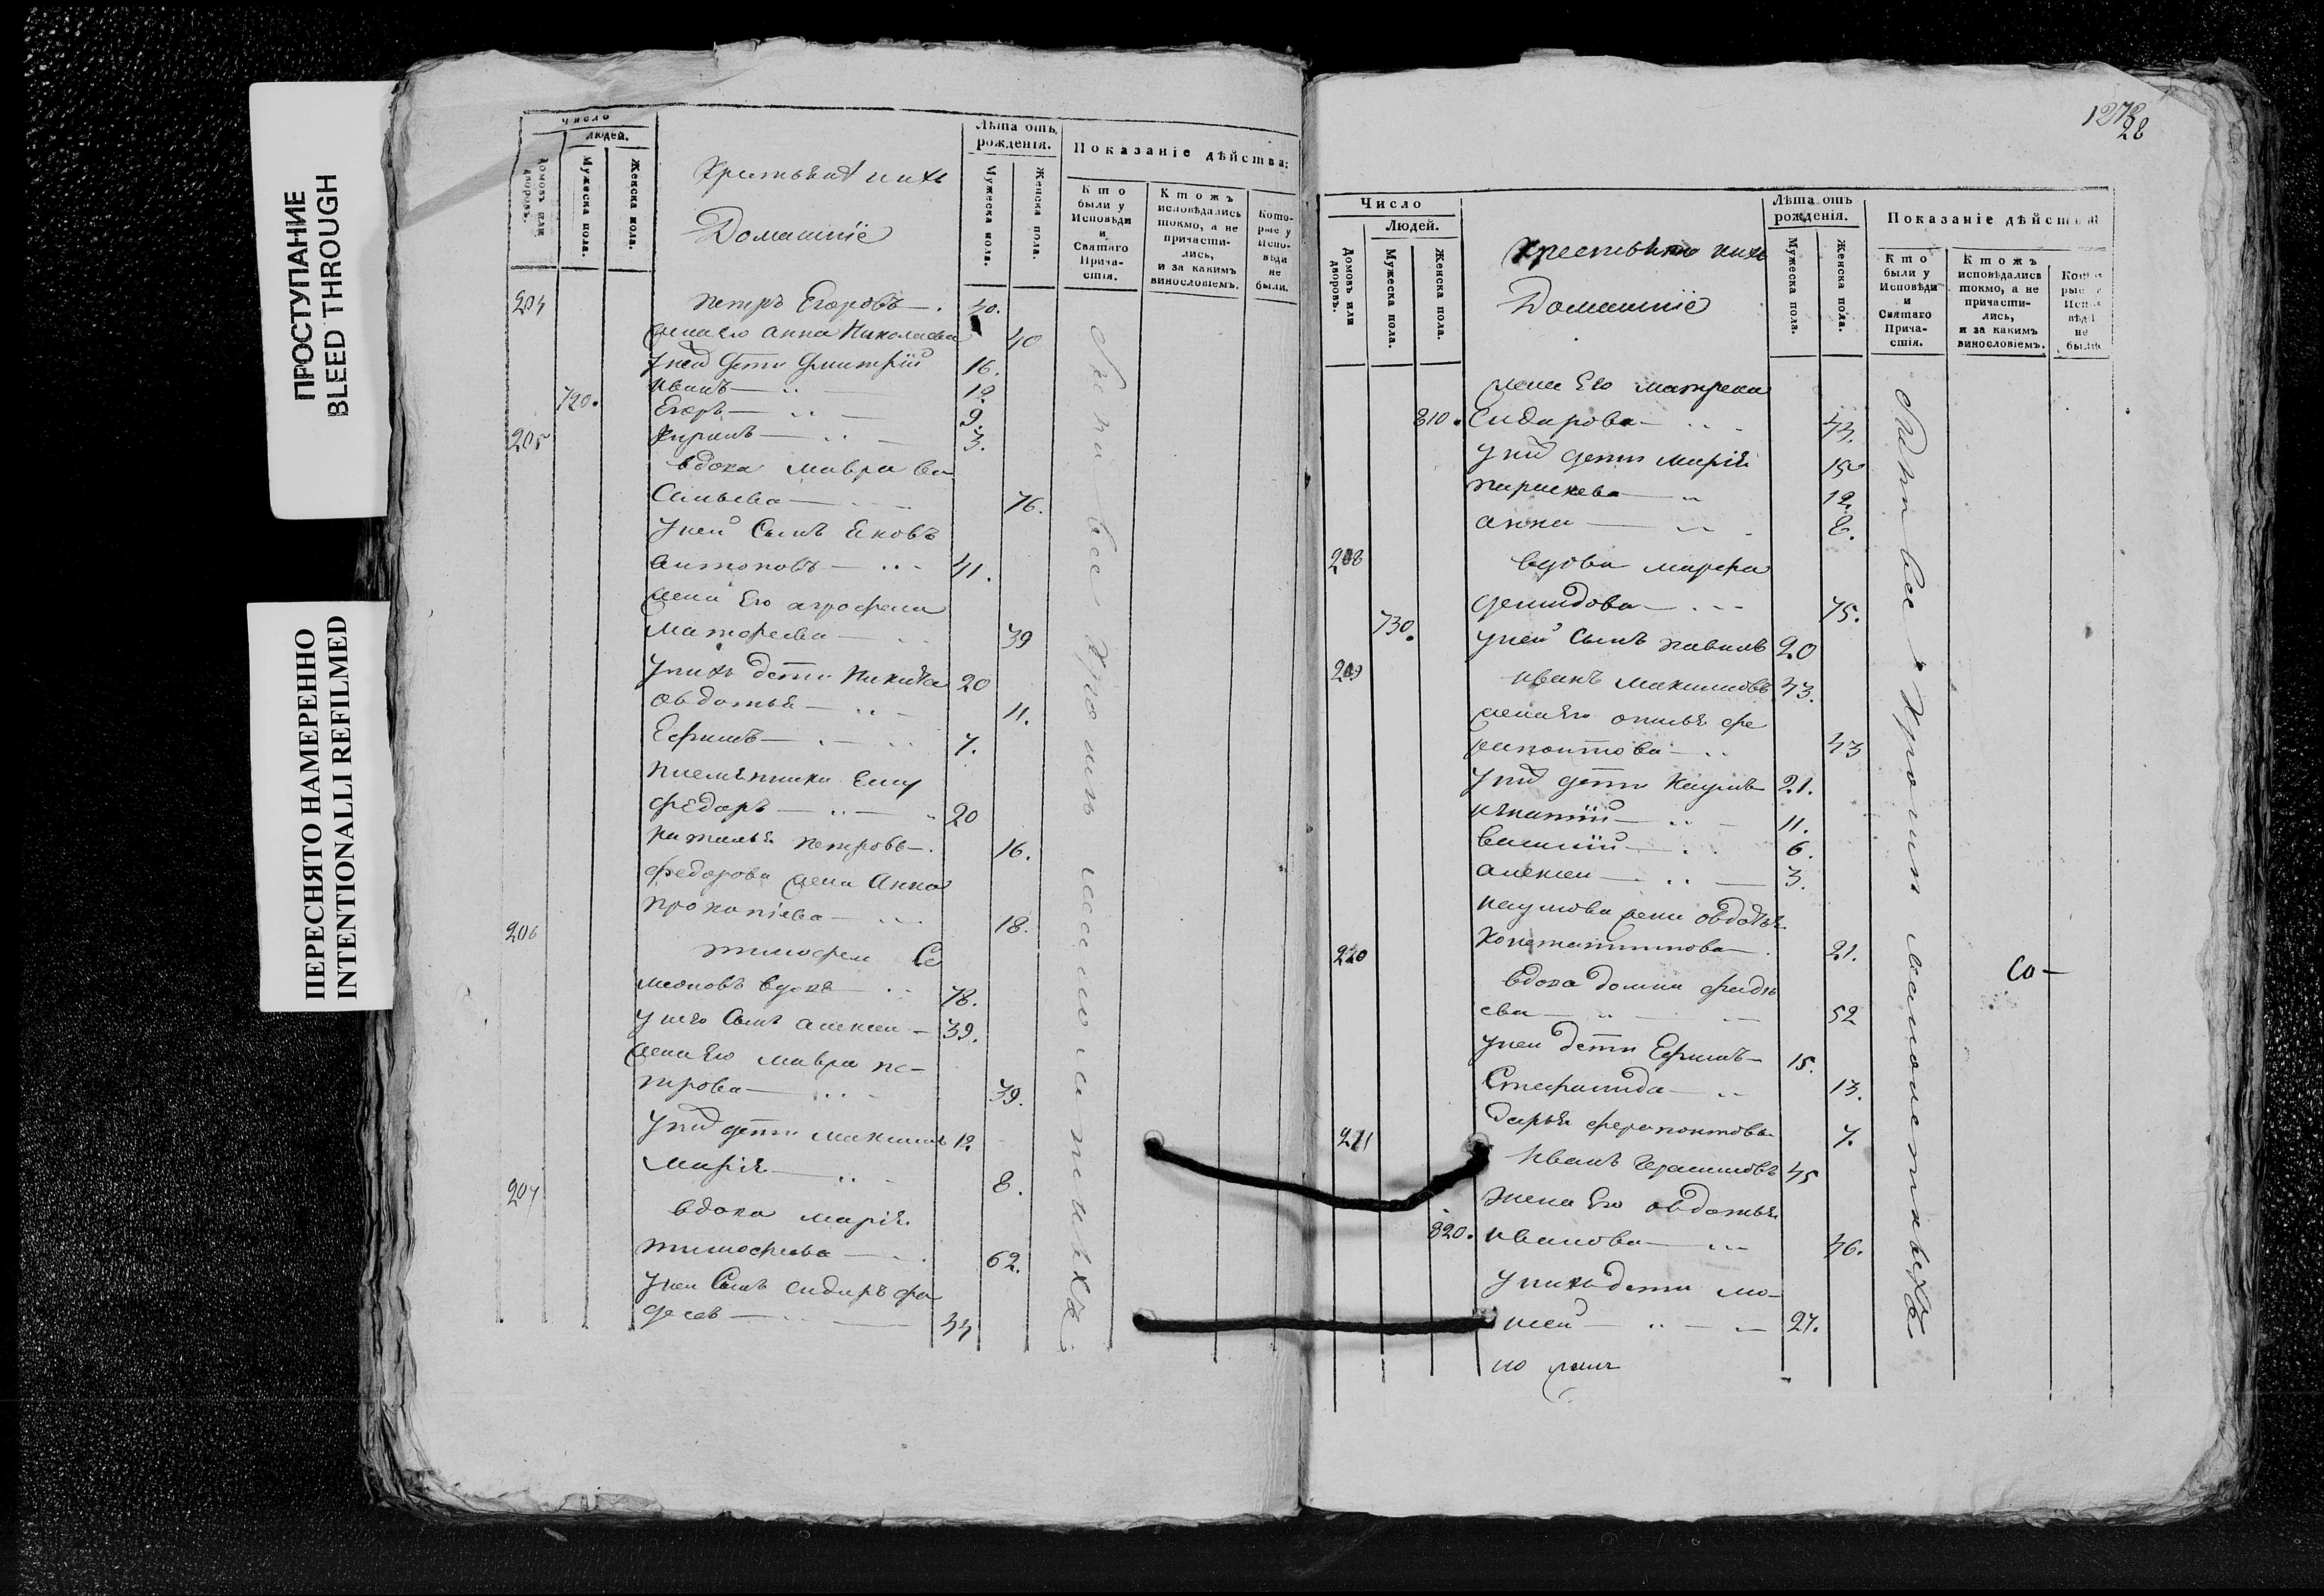 ПРОСТУПАНИЕ
BLEED THROUGH
ПЕРЕСНЯТО НАМЕРЕННО
INTENTIONALLI REFILMED
Число
людей.
домовъ или дворовъ.
Мужеска пола.
Женска пола.
Домашніе
Лѣта отъ рожденія.
Мужеска пола.
Женска пола.
Показаніе дѣйства:
Кто были у Исповѣди и Святаго Прича- стія.
Ктожъ исповѣдались токмо, а не причасти- лись, и за какимъ винословіемъ.
Кото- рые у Испо- вѣди не были.
204 Петръ Егоровъ 40.
жена Его Анна Николаева 40
у ней дети Дмитрій 16.
Иванъ 12.
720. Егоръ 9.
205 3.
вдова Мавра Ва
сильева 76.
у ней Сынъ Яковъ
Антоновъ 41.
жена Его агрофена
Матфеева 39
у нихъ дети Никита 20
овдотья 11.
Ефимъ 7.
племянники Ему
Федоръ 20
Наталья Петрова 16.
Федорова жена Анна
Прокопіева 18.
206 Тимофеи Се
меоновъ вдовъ 78.
у него Сынъ алексеи 39.
жена Его мавра пе-
трова 39.
у них дети максимъ 12.
Марія 8.
207 вдова марія
тимофеева 62.
у неи Сынъ сидиръ фа
деев 44
1273
28
Число
Людей.
Домовъ или дворовъ.
Мужеска пола.
Женска пола.
Домашніе
Лѣта отъ рожденія.
Мужеска пола.
Женска пола.
Показаніе дѣйства
Кто были у Исповѣди и Святаго Прича- стія.
Ктожъ исповѣдались токмо, а не причасти- лись, и за какимъ винословіемъ.
жена Его матрена
810. Сидарова 44.
у них дети марія 15
параскева 12.
анна 8.
208 вдова марфа
демидова 75.
730. у ней Сынъ павилъ 20
209 иванъ макимовъ 43.
жена Его
43
у них дети Наумъ 21.
игнатій 11.
василій 6.
алексеи 3.
наумова жена овдотья
константинова 21.
210 вдова домна фадѣ
ева 52
у неи дети Ефимъ 15.
Стефанида 13.
дарья ферапонтова 7.
211 Иванъ Герасимовъ 45
жена Его овдотья
820. иванова 46.
у нихъ дети мо-
исеи 27.
Со-